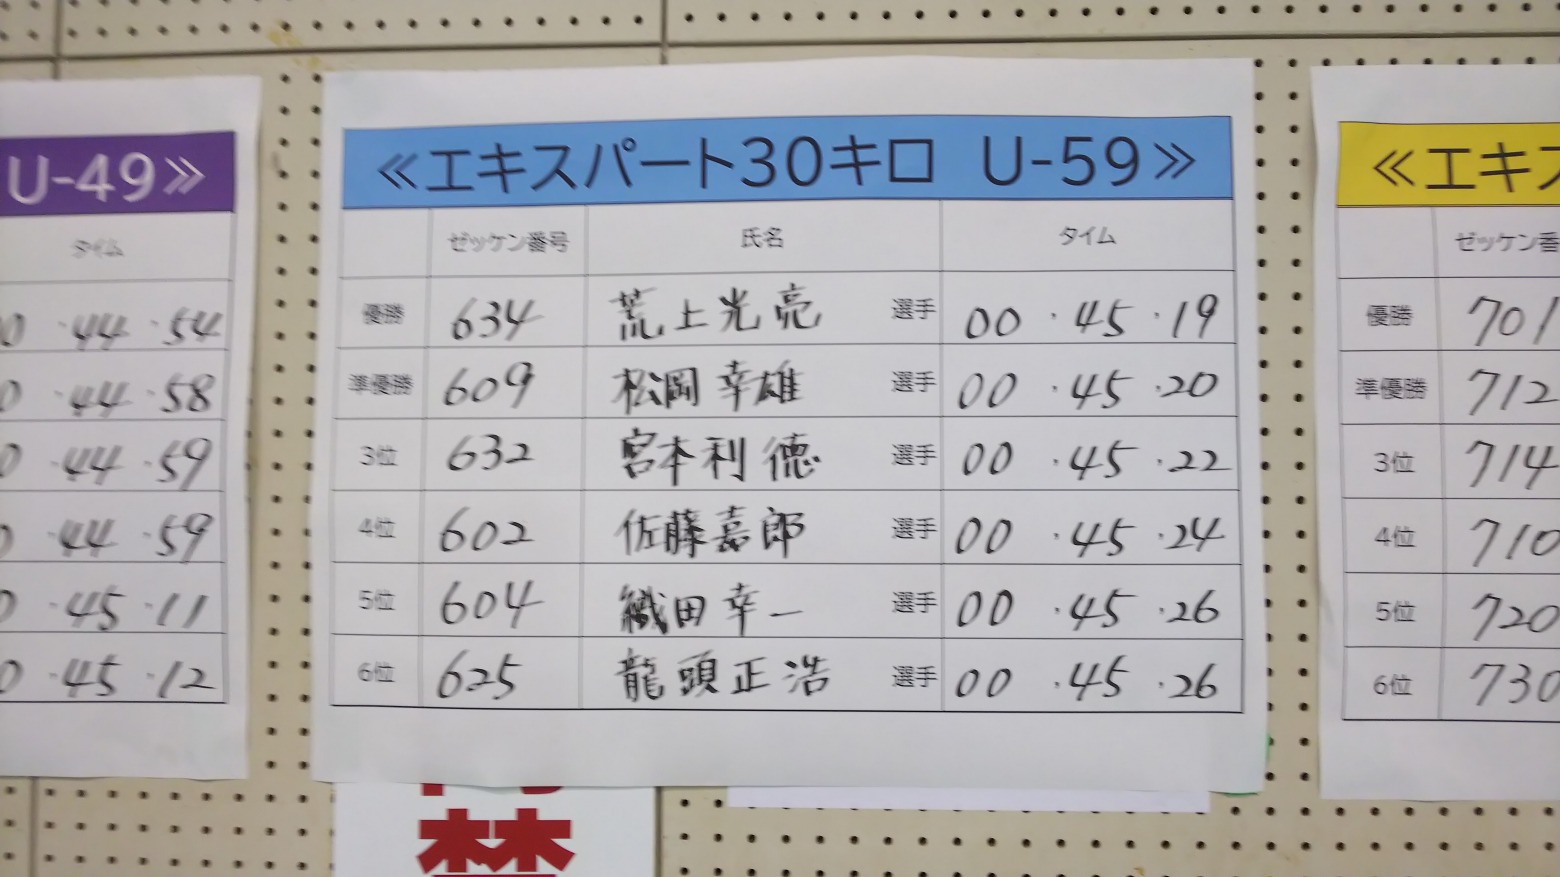 U-49≫
タイム
0 ・44 ・54
0 ・44 ・58
0 ・44 ・59
0 ・44 ・59
0 ・45 ・11
0 ・45 ・12
≪エキスパート30キロ U-59≫
ゼッケン番号 氏名 タイム
優勝 634 荒上光亮 選手 00 ・45 ・19
準優勝 609 松岡幸雄 選手 00 ・45 ・20
3位 632 宮本利徳 選手 00 ・45 ・22
4位 602 佐藤嘉郎 選手 00 ・45 ・24
5位 604 織田幸一 選手 00 ・45 ・26
6位 625 龍頭正浩 選手 00 ・45 ・26
≪エキス
ゼッケン番
優勝 701
準優勝 712
3位 714
4位 710
5位 720
6位 730
禁